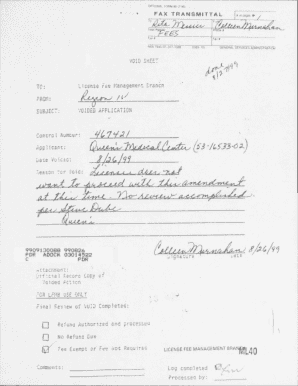 FAX TRANSMITTAL
Rita Messier
Colleen Murnahan
FEES
VOID SHEET
done
8/27/99
TO: License Fee Management Branch
FROM: Region IV
SUBJECT: VOIDED APPLICATION
Control Number: 467421
Applicant: Queen's Medical Center (53-16533-02)
Date Voided: 8/26/99
Reason for Void: Licensee does not
want to proceed with this amendment
at this time. No review accomplished
per Steve
Queen's
Colleen Murnahan 8/26/99
Signature Date
9909130088 990826
PDR ADOCK 03014522
PDR
Attachment:
Official Record Copy of
Voided Action
FOR LFMB USE ONLY
Final Review of VOID Completed:
Refund Authorized and processed
No Refund Due
Fee Exempt or Fee Not Required
LICENSE FEE MANAGEMENT BRANCH
ML40
Comments:
Log completed
Processed by: